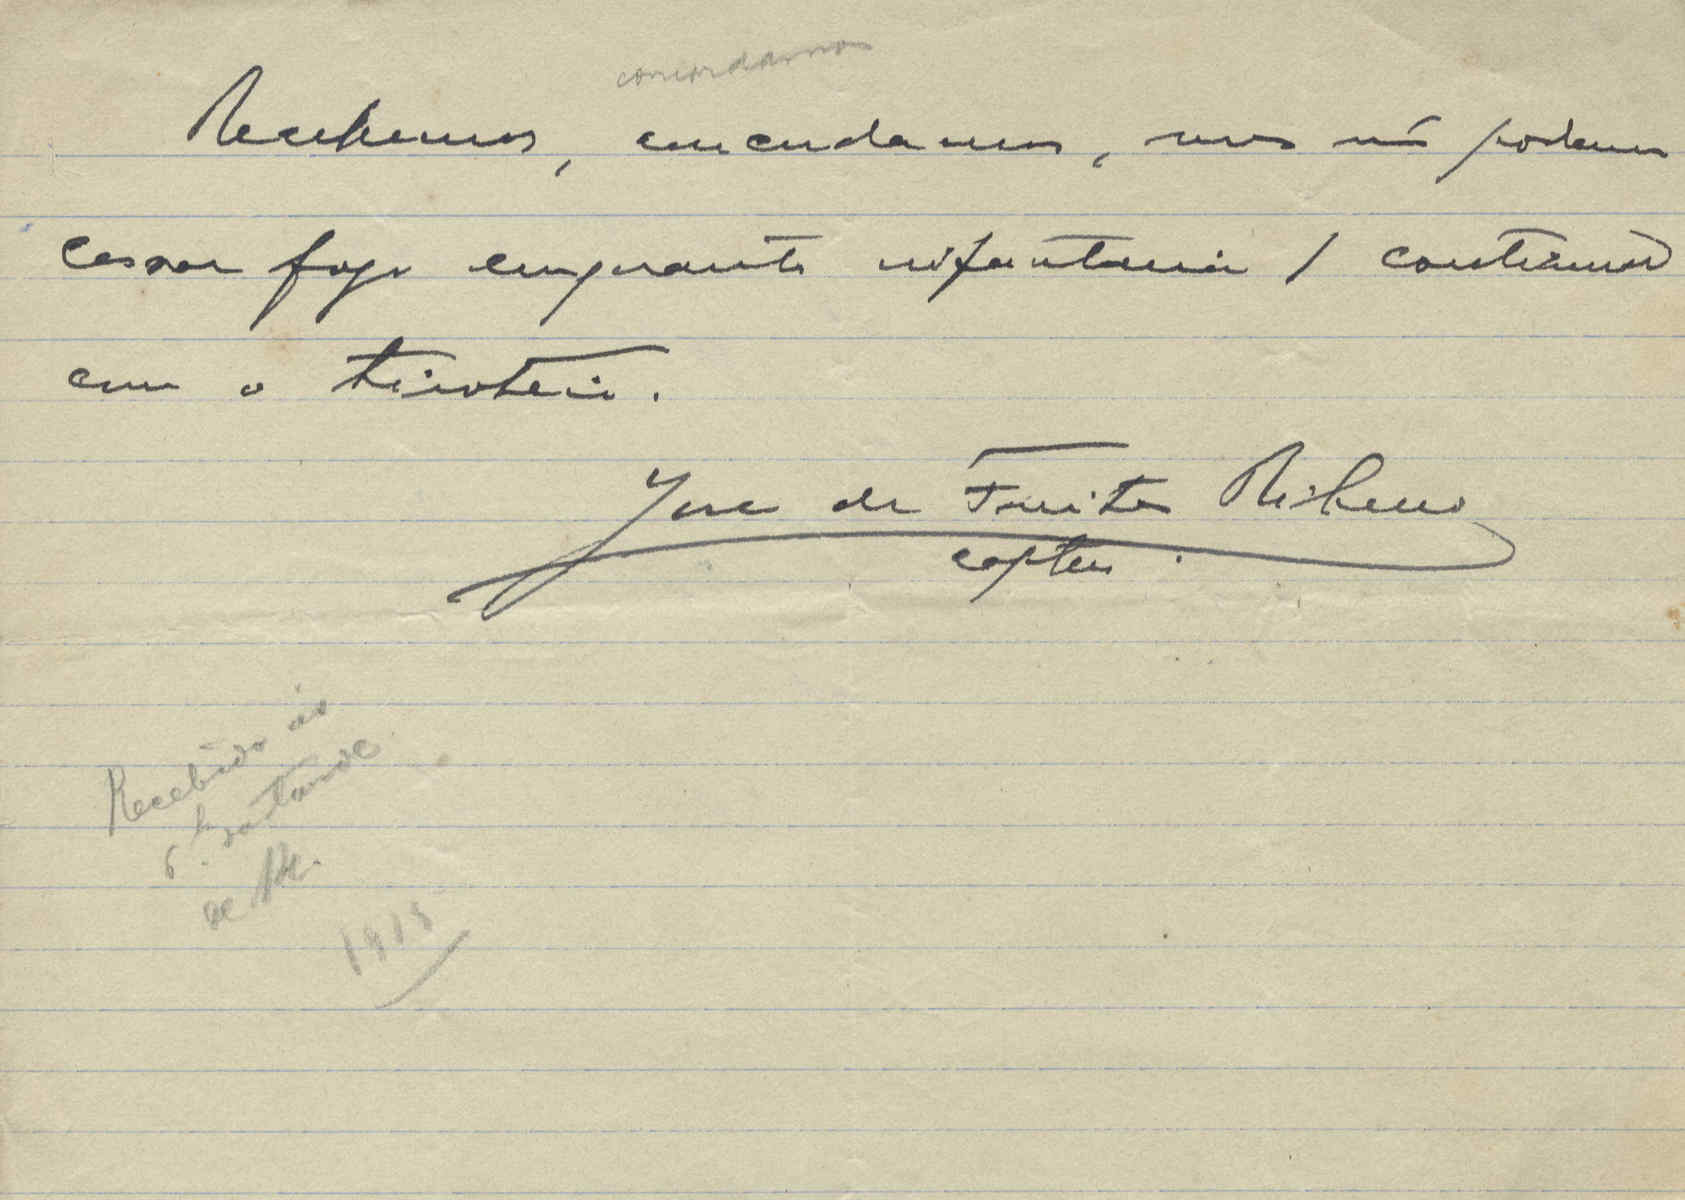 concordamos
Recebemos, concordamos, mas não podemos
cessar fogo emquanto infantaria 1 continuar
com o tiroteio.
José de Freitas Ribeiro
capten
Recebido ás
6 h. da tarde
de 14.
1915